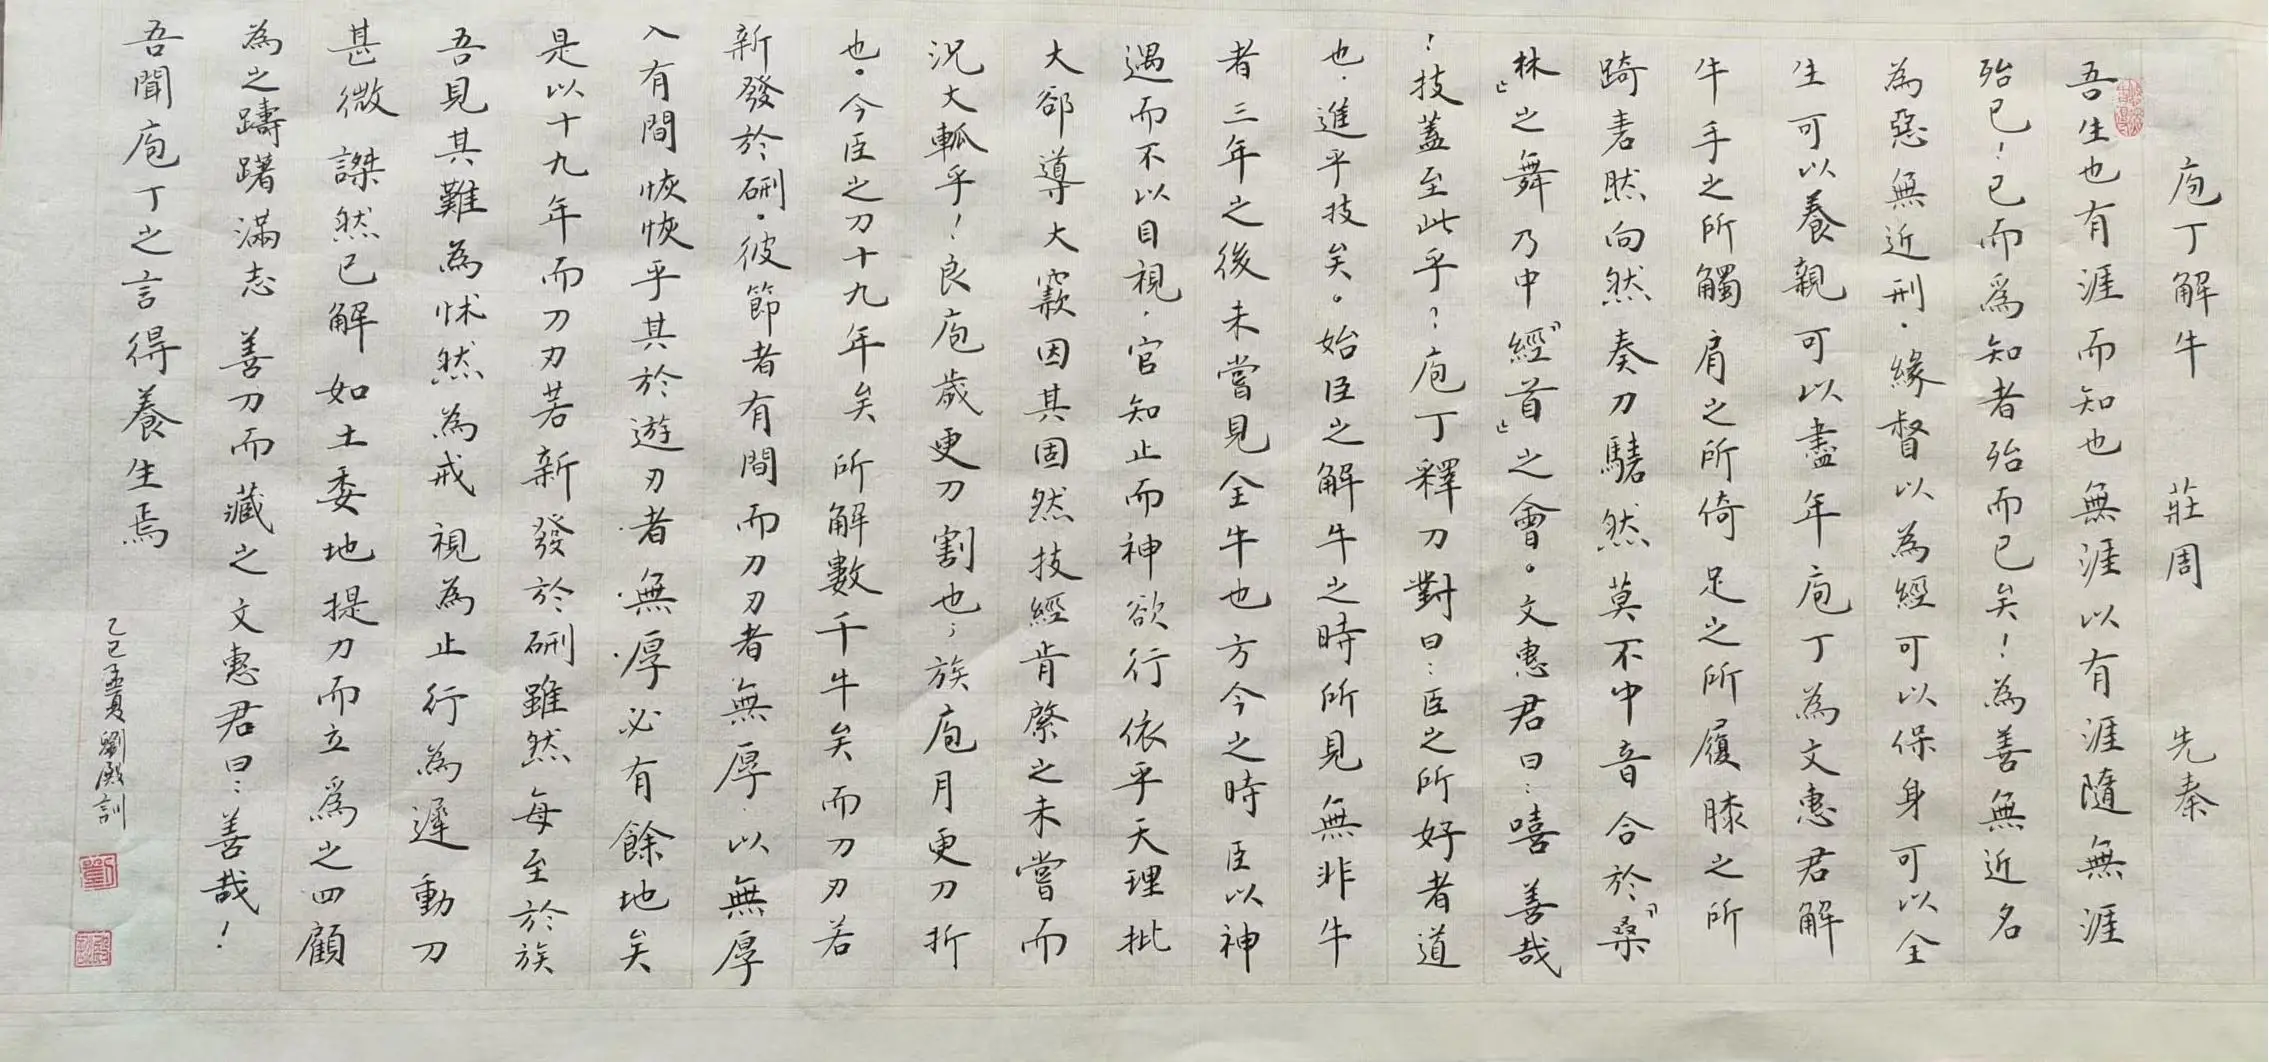 庖丁解牛 莊周 先秦
吾生也有涯而知也無涯以有涯隨無涯
殆已！已而為知者殆而已矣！為善無近名
為惡無近刑．緣督以為經可以保身可以全
生可以養親可以盡年庖丁為文惠君解
牛手之所觸肩之所倚足之所履膝之所
踦砉然向然奏刀騞然莫不中音合於「桑
林」之舞乃中「經首」之會。文惠君曰：嘻善哉
！技蓋至此乎？庖丁釋刀對曰：臣之所好者道
也．進乎技矣。始臣之解牛之時所見無非牛
者三年之後未嘗見全牛也方今之時臣以神
遇而不以目視．官知止而神欲行依乎天理批
大郤導大窾因其固然技經肯綮之未嘗而
況大軱乎！良庖歲更刀割也；族庖月更刀折
也。今臣之刀十九年矣所解數千牛矣而刀刃若
新發於硎。彼節者有間而刀刃者無厚．以無厚
入有間恢恢乎其於遊刃者無厚必有餘地矣
是以十九年而刀刃若新發於硎雖然每至於族
吾見其難為怵然為戒視為止行為遲動刀
甚微謋然已解如土委地提刀而立為之四顧
為之躊躇滿志善刀而藏之文惠君曰：善哉！
吾聞庖丁之言得養生焉
乙巳孟夏劉殿訓
劉